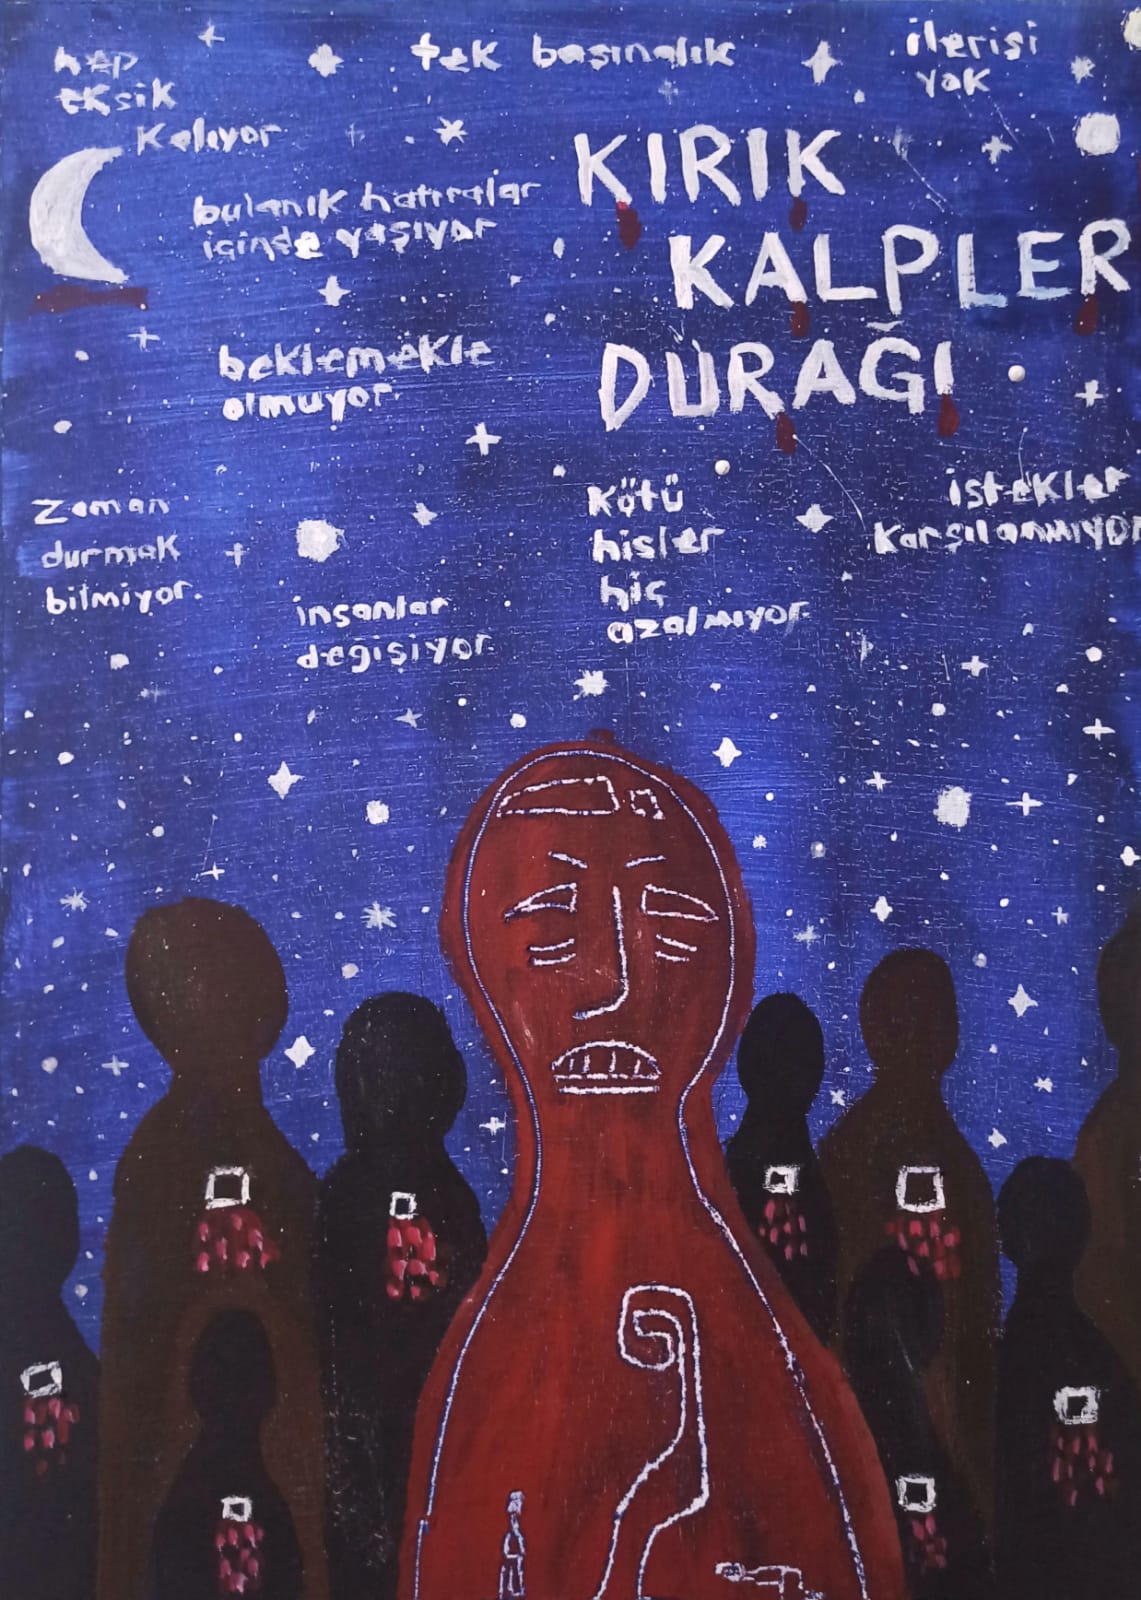 hep
eksik
kalıyor
tek başınalık
ilerisi
yok
KIRIK
KALPLER
DURAĞI
bulanık hatıralar
içinde yaşıyor
beklemekle
olmuyor.
zaman
durmak
bilmiyor.
insanlar
değişiyor.
kötü
hisler
hiç
azalmıyor.
istekler
karşılanmıyor